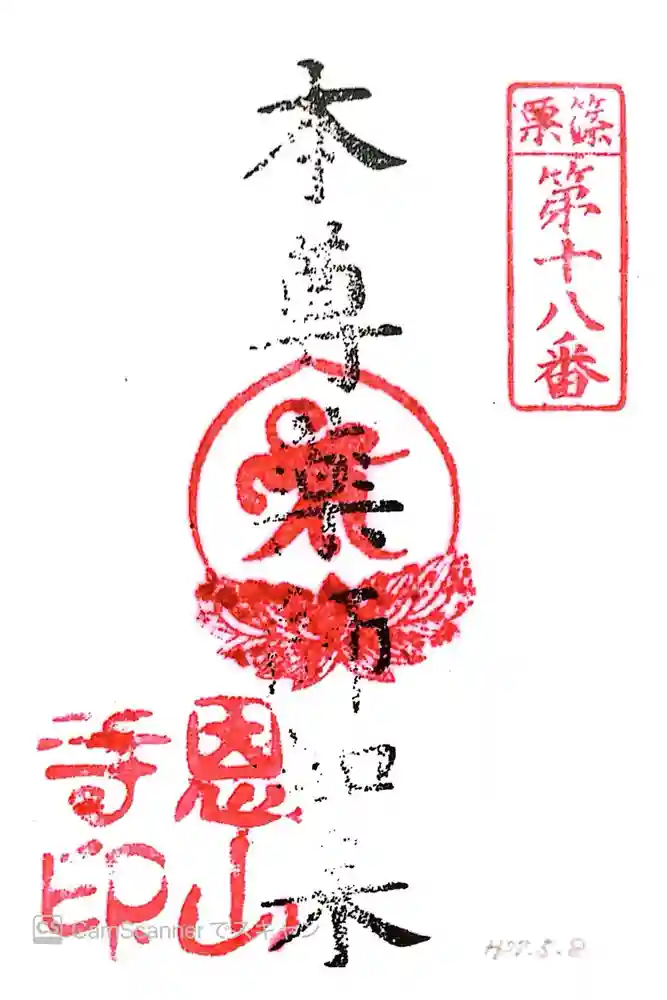 篠栗
第十八番
本尊薬師如来
恩山
寺印
CamScanner でスキャン